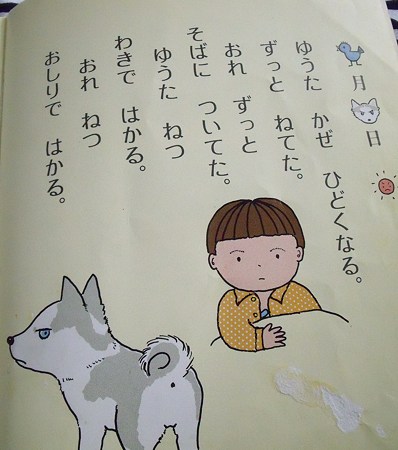 月 日
ゆうた かぜ ひどくなる。
ずっと ねてた。
おれ ずっと
そばに ついてた。
ゆうた ねつ
わきで はかる。
おれ ねつ
おしりで はかる。